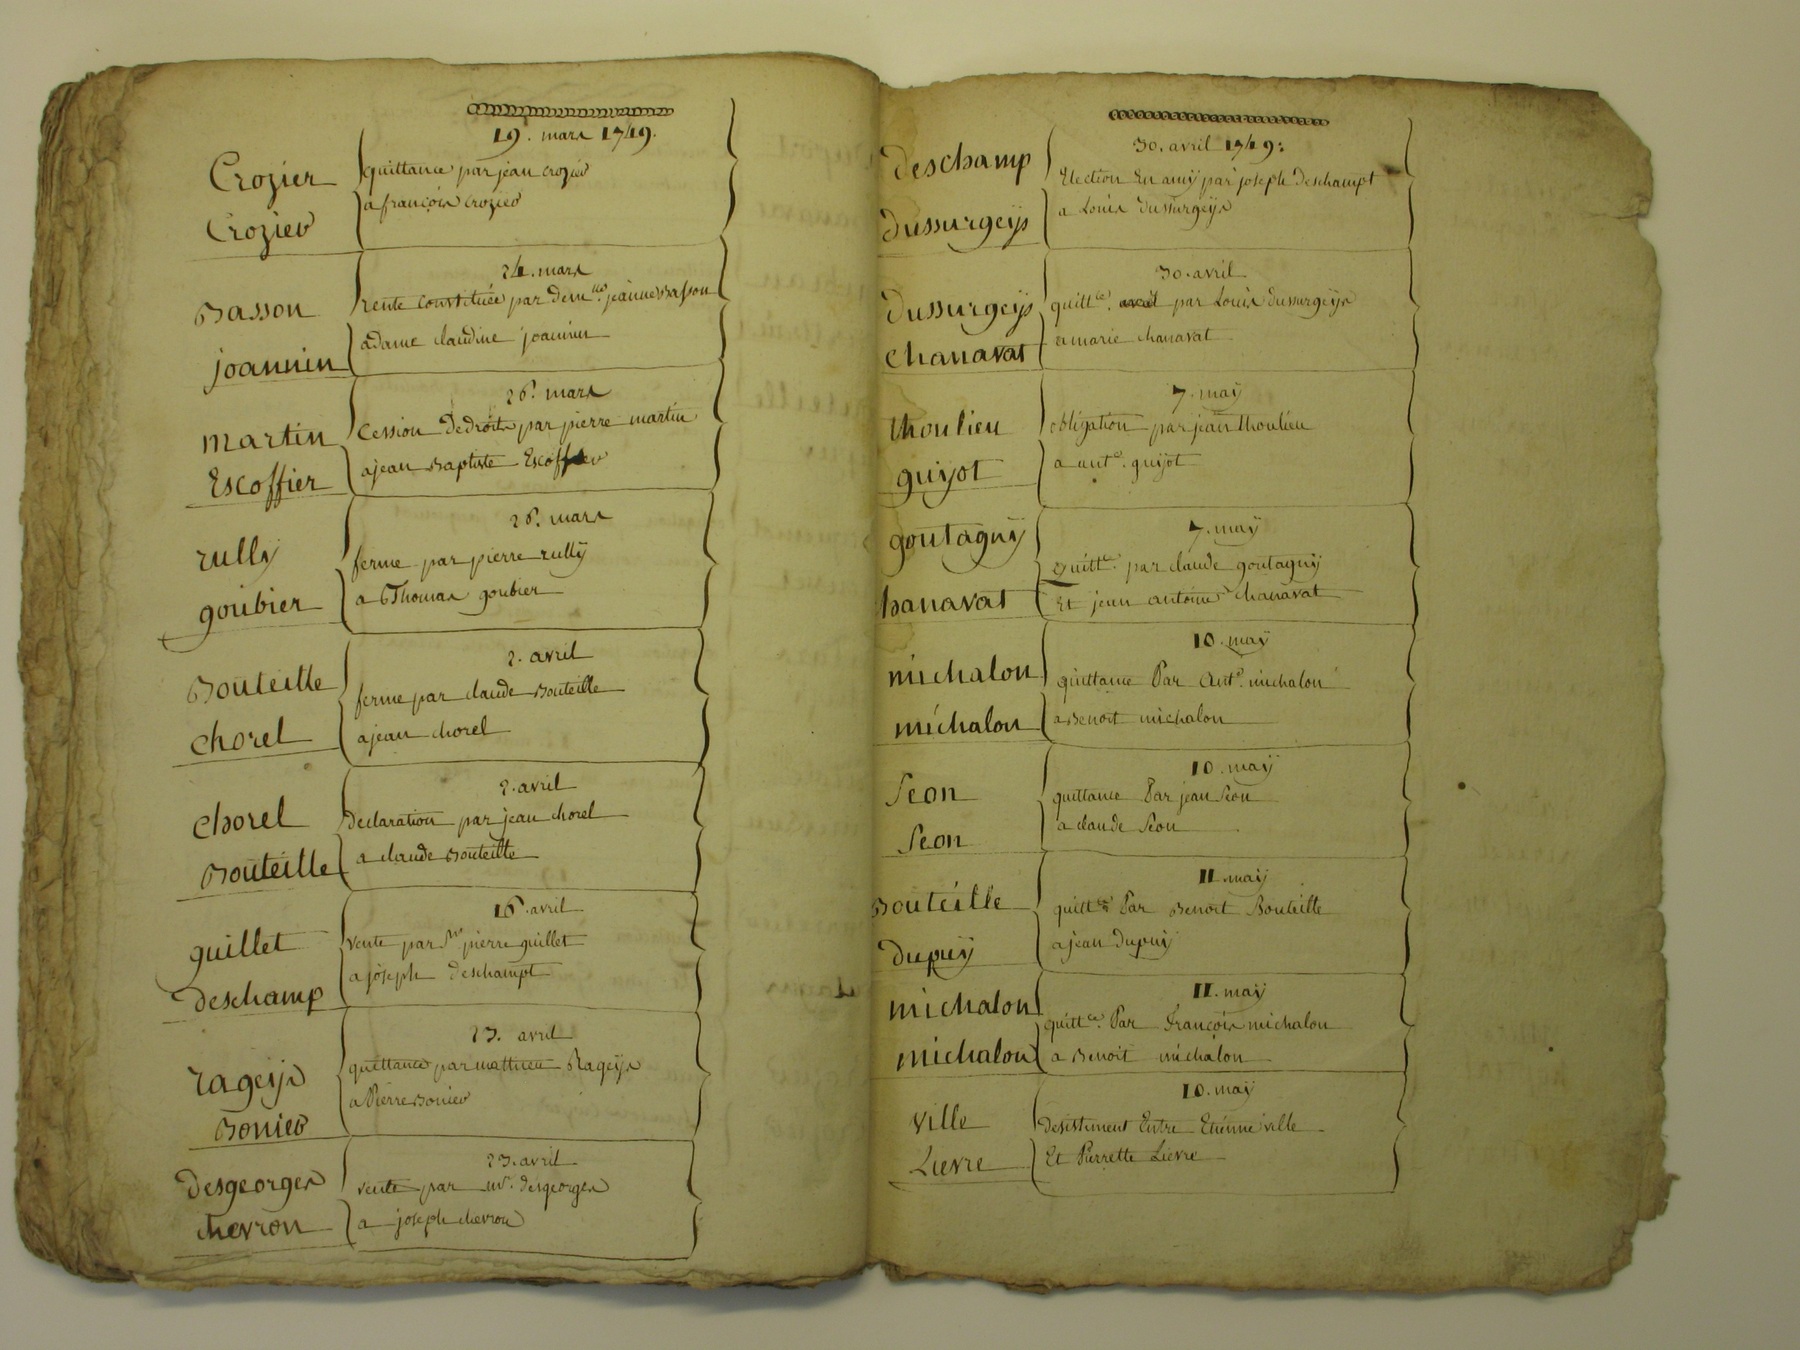 19. mars 1749.
Crozier
quittance par jean crozier
Crozier
a françois crozier
24. mars
Basson
rente constituée par dem.lle jeanne Basson
joannin
a dame claudine joannin
26. mars
martin
Cession de droits par pierre martin
Escoffier
a jean Baptiste Escoffier
26. mars
rully
ferme par pierre rully
goubier
a Thomas goubier
2. avril
Bouteille
ferme par claude Bouteille
chorel
a jean chorel
2. avril
chorel
declaration par jean chorel
Bouteille
a claude Bouteille
16. avril
guillet
vente par pierre guillet
deschamp
a joseph deschampt
23. avril
rageys
quittance par mathieu Rageys
Bonier
a Pierre Bonier
23. avril
desgeorges
vente par mr. desgeorges
chevron
a joseph chevron
30. avril 1749:
deschamp
Election En amy par joseph deschampt
dussurgeys
a Louis dussurgeys
30. avril
dussurgeys
quitt.ce par Louis dussurgeys
chanavat
a marie chanavat
7. may
thoulieu
obligation par jean thoulieu
guyot
a ant.e guyot
7. may
goutagny
quitt.ce par claude goutagny
chanavat
Et jean antoine chanavat
10. may
michalon
quittance Par Ant.e michalon
michalon
a Benoit michalon
10. may
Seon
quittance Par jean Seon
Seon
a claude Seon
11. may
Bouteille
quitt.ce Par Benoit Bouteille
Dupuy
a jean Dupuy
11. may
michalon
quitt.ce Par françois michalon
michalon
a Benoit michalon
10. may
ville
desistiment Entre Etienne ville
Lievre
Et Pierrette Lievre